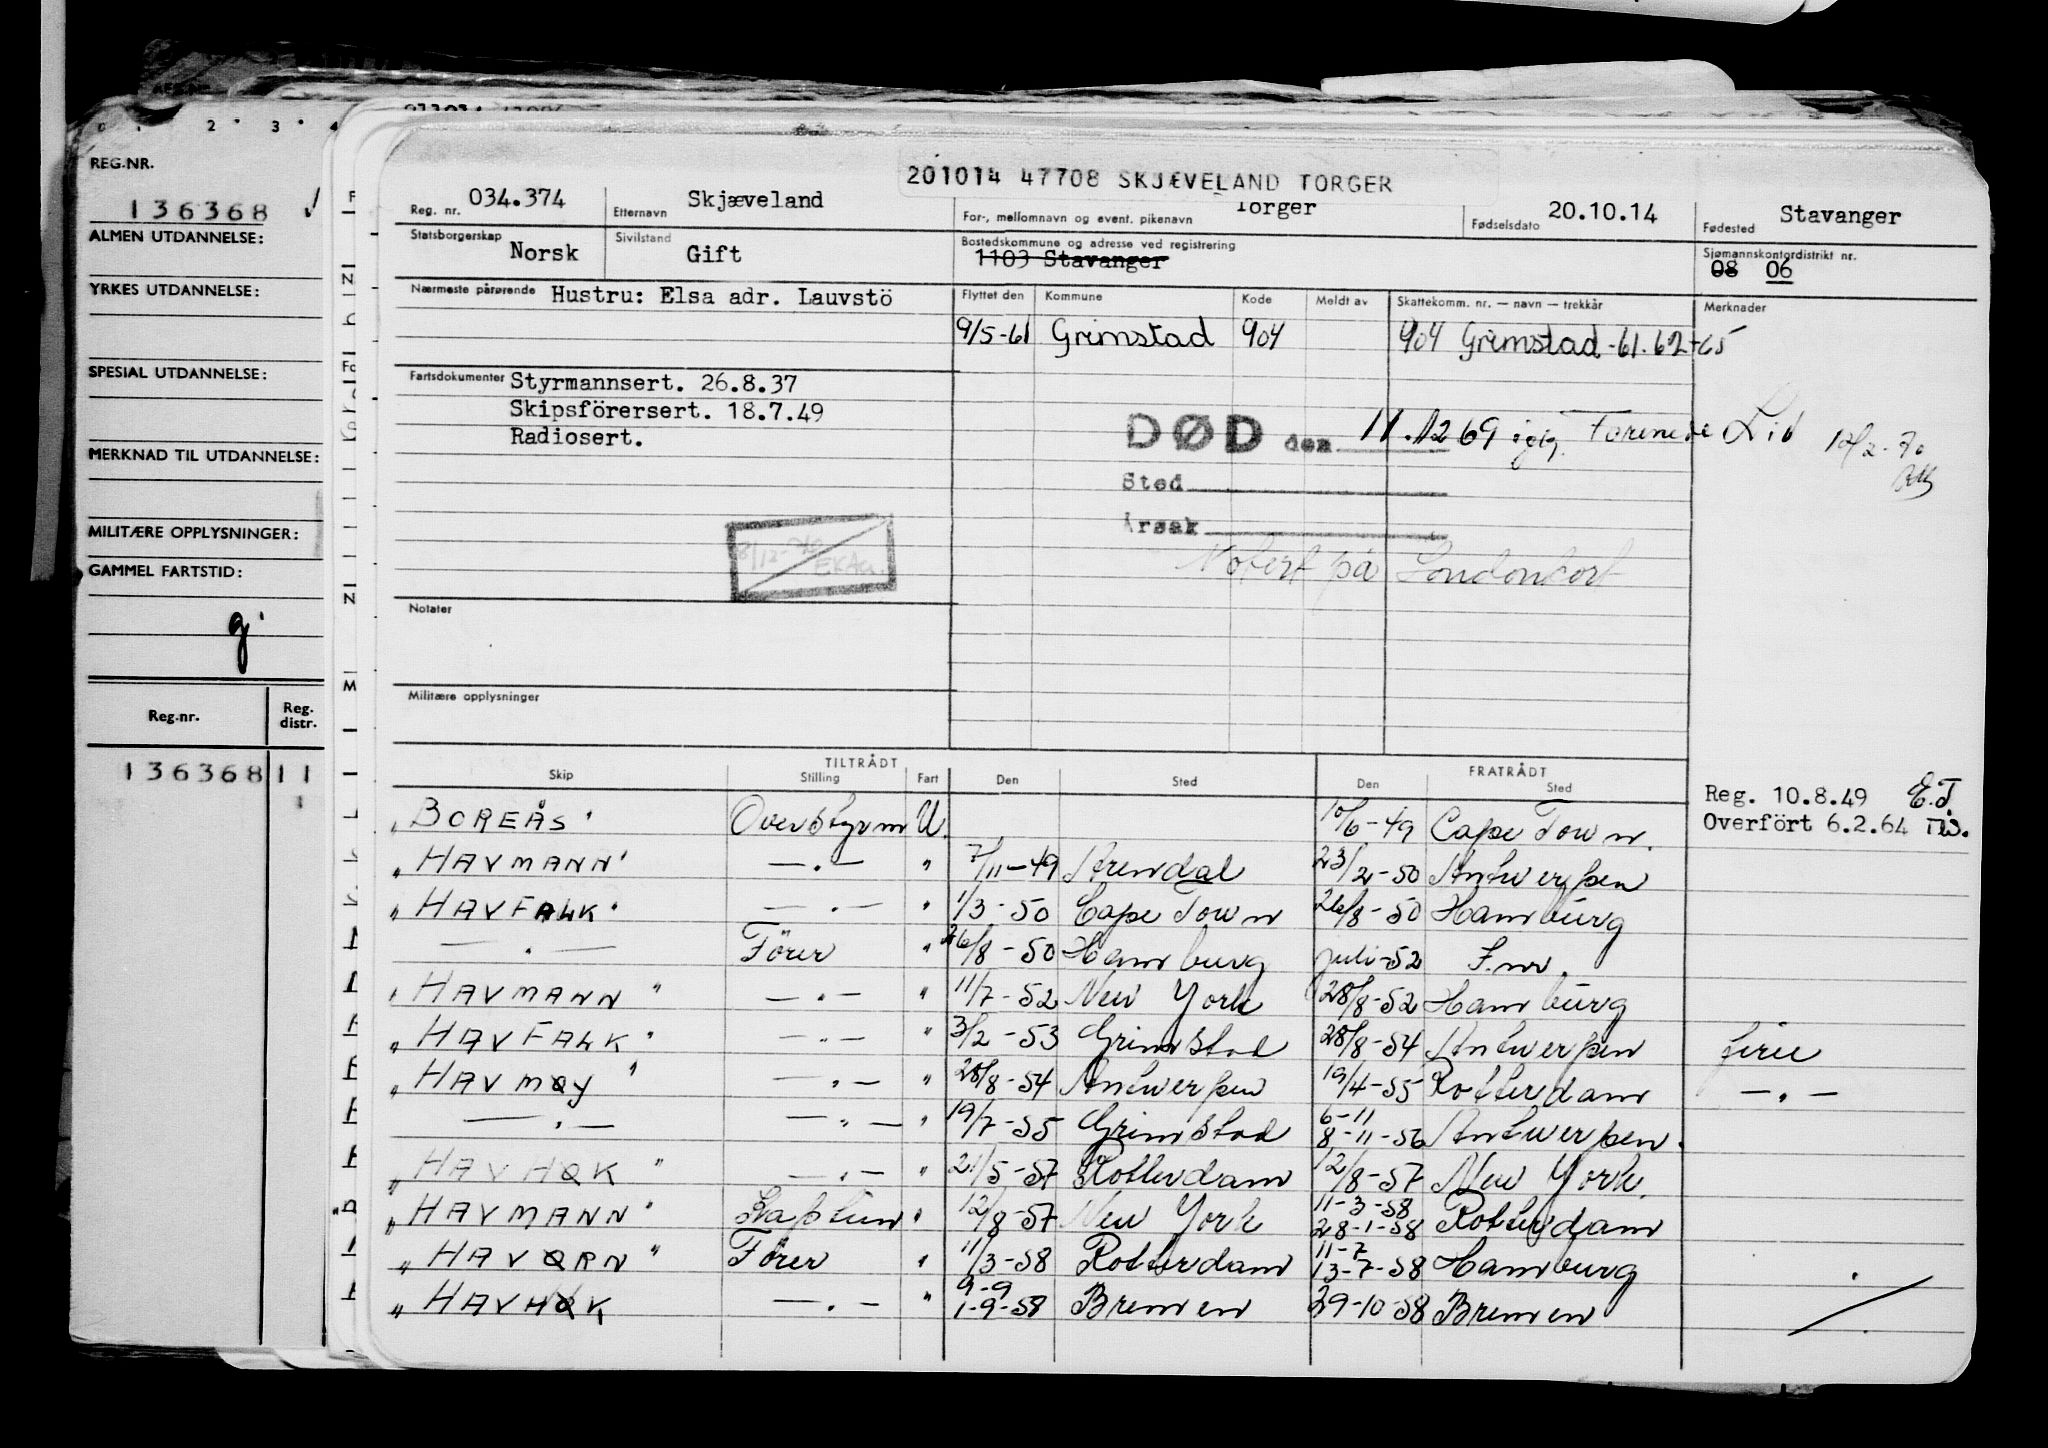 0 1 2 3 4
REG.NR.
136368
ALMEN UTDANNELSE:
YRKES UTDANNELSE:
SPESIAL UTDANNELSE:
MERKNAD TIL UTDANNELSE:
MILITÆRE OPPLYSNINGER:
GAMMEL FARTSTID:
g.
Reg.nr. Reg. distr.
136368 11
201014 47708 SKJÆVELAND TORGER
Reg. nr. 034.374 Etternavn Skjæveland For-, mellomnavn og event. pikenavn Torger Fødselsdato 20.10.14 Fødested Stavanger
Statsborgerskap Norsk Sivilstand Gift Bostedskommune og adresse ved registrering 1103 Stavanger Sjømannskontordistrikt nr. 08 06
Nærmeste pårørende Hustru: Elsa adr. Lauvstö Flyttet den Kommune Kode Meldt av Skattekomm. nr. — navn — trekkår Merknader
9/5-61 Grimstad 904 904 Grimstad -61.62+65
Fartsdokumenter Styrmannsert. 26.8.37
Skipsförersert. 18.7.49
Radiosert.
DØD den 11.12 69 Forenede Liv 12/2-70
Sted
Årsak
Notert på Londonkort
Notater
Militære opplysninger
TILTRÅDT FRATRÅDT
Skip Stilling Fart Den Sted Den Sted
Reg. 10.8.49 E.T.
Overfört 6.2.64
"BOREÅS" Overstyrm U. 10/6-49 Cape Town.
"HAVMANN" —.— " 7/11-49 Arendal 23/2-50 Antwerpen
"HAVFALK" —.— " 1/3-50 Cape Town 26/8-50 Hamburg
—.— Förer " 26/8-50 Hamburg juli-52 F.nr.
"HAVMANN" —.— " 11/7-52 New York 28/8-52 Hamburg
"HAVFALK" —.— " 3/2-53 Grimstad 28/8-54 Antwerpen ferie
"HAVMØY" —.— " 28/8-54 Antwerpen 19/4-55 Rotterdam —.—
—.— —.— " 19/7-55 Grimstad 6-11 8-11-56 Antwerpen.
"HAVHØK" —.— " 21/5-57 Rotterdam 12/8-57 New York.
"HAVMANN" Kaptein " 12/8-57 New York 11-3-58 28-1-58 Rotterdam
"HAVØRN" Förer " 11/3-58 Rotterdam 11-7 13-7-58 Hamburg
"HAVHØK —.— " 9-9 1-9-58 Bremen 29-10-58 Bremen